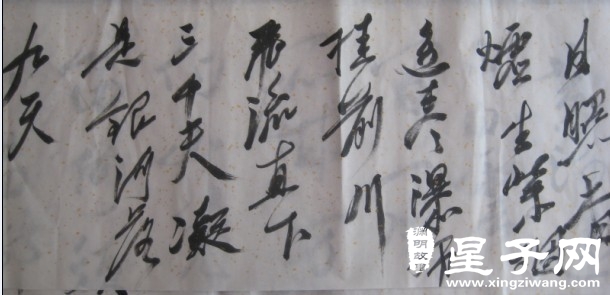 日照香
爐生紫烟
遥看瀑布
挂前川
飛流直下
三千尺凝
是銀河落
九天
渊明故里
星子网
www.xingziwang.com